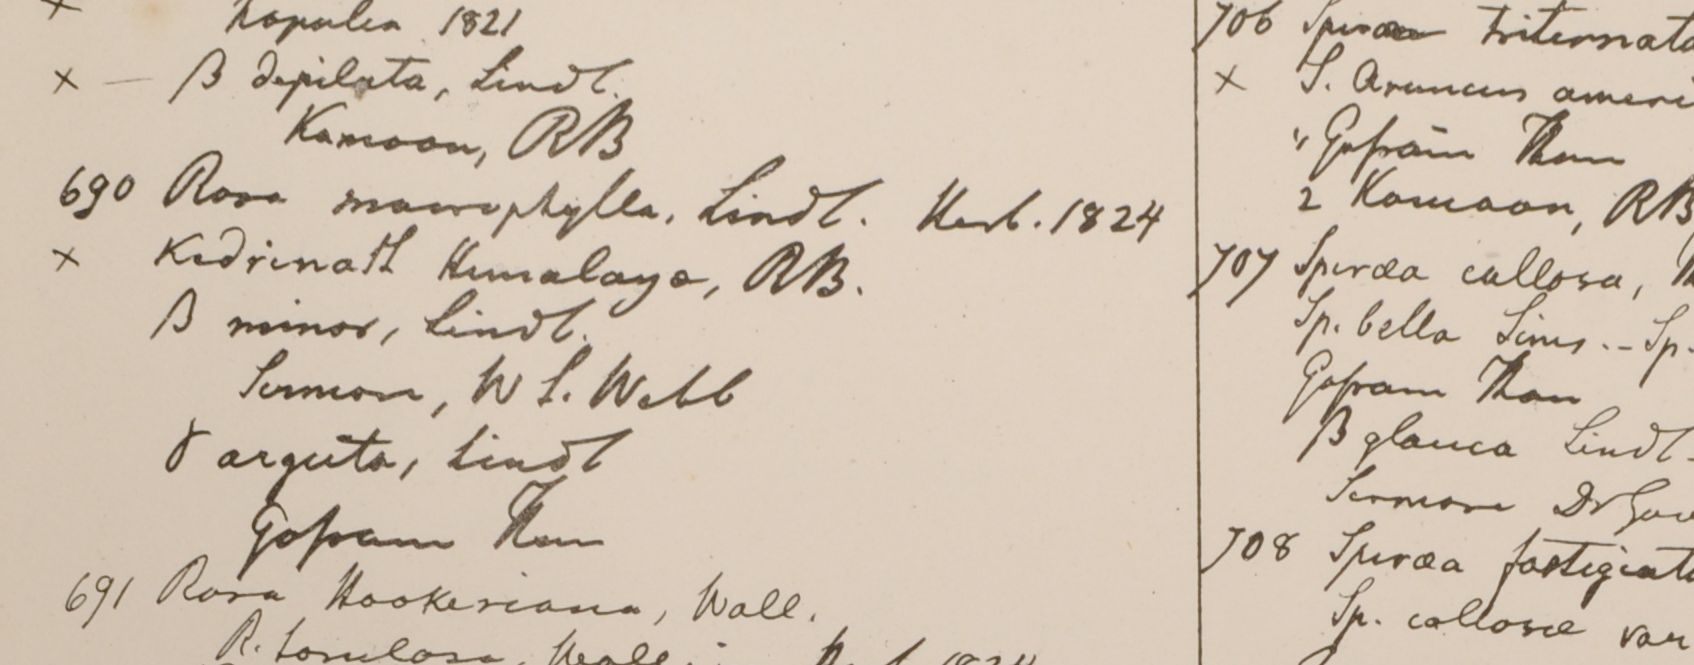 × Napalia 1821
× — β depilata, Lindl.
Kamoon, RB
690 Rosa macrophylla, Lindl. Herb. 1824
× Kedrinath Himalaya, RB.
β minor, Lindl.
Sirmore, W S. Webb
γ arguta, Lindl
Gossam Than
691 Rosa Hookeriana, Wall.
706 Spiraea triternata
× S. Aruncus ameri
" Gossain Than
2 Kamaon, RB
707 Spiræa callosa,
Sp. bella Sims. - Sp.
Gossam Than
β glauca Lindl -
Sirmore Dr Gov
708 Spiræa fastigiata
Sp. callosæ var